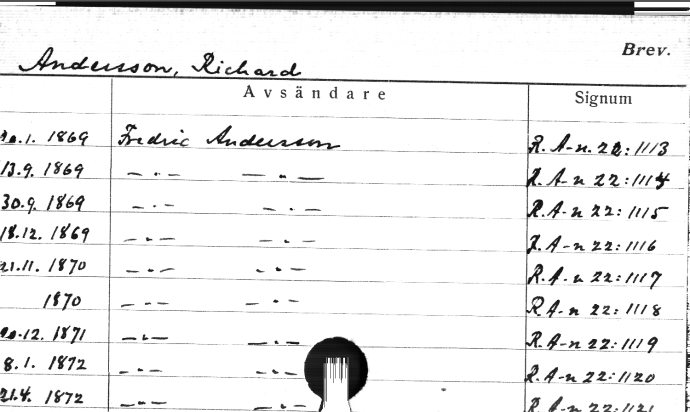 Brev.
Andersson, Richard
Avsändare Signum
20.1. 1869 Fredric Andersson R. A-n. 22:1113
13.9. 1869 — " — — " — R. A-n 22:1114
30.9. 1869 — " — — " — R. A-n 22:1115
18.12. 1869 — " — — " — R. A-n 22:1116
21.11. 1870 — " — — " — R. A-n 22:1117
1870 — " — — " — R. A-n 22:1118
20.12. 1871 — " — — " — R. A-n 22:1119
8.1. 1872 — " — — " — R. A-n 22:1120
21.4. 1872 — " — — " — R. A-n 22:1121